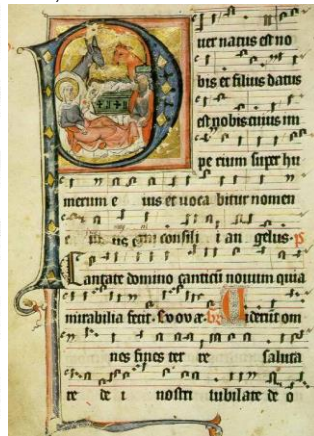 P uer natus est no
bis et filius datus
est nobis cuius im
pe rium super hu
merum e ius et uoca bitur nomen
e ius consili i an gelus. ps
Cantate domino canticum nouum quia
mirabilia fecit. Evovae. Viderunt om
nes fines ter re saluta
re de i nostri iubilate de o